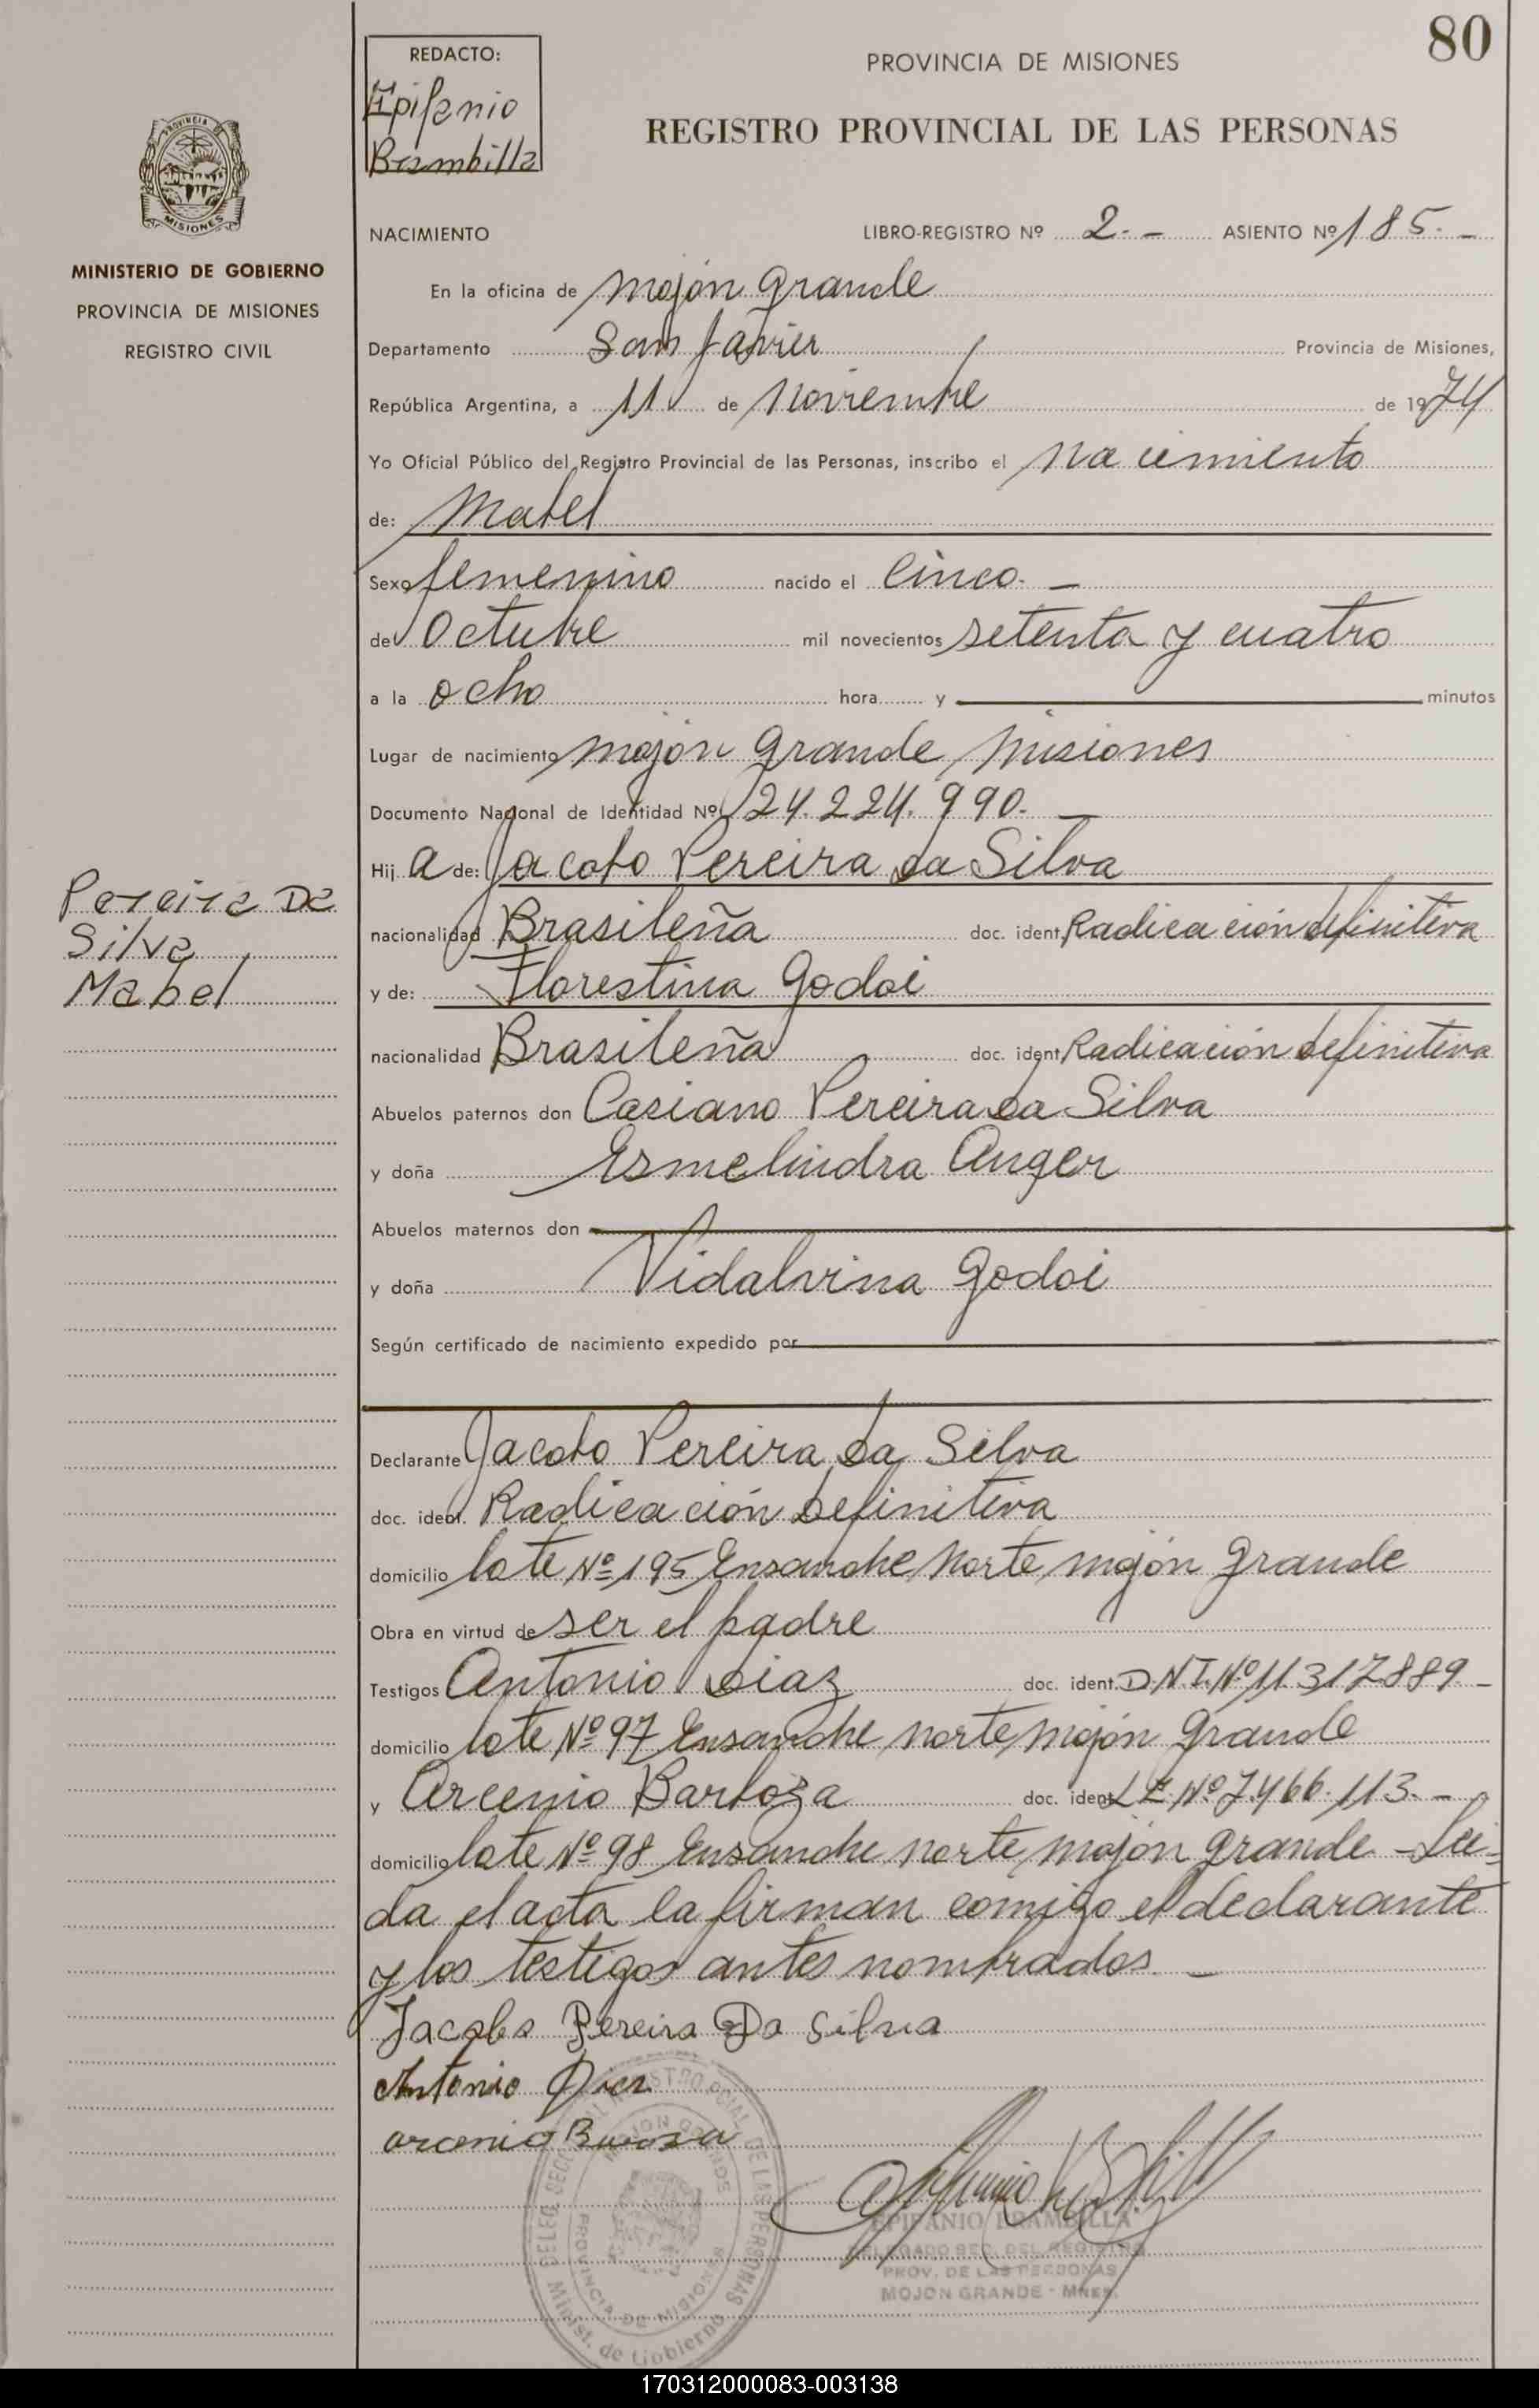 80
REDACTO:
Epifanio
Brambilla
PROVINCIA DE MISIONES
REGISTRO PROVINCIAL DE LAS PERSONAS
PROVINCIA DE
MISIONES
MINISTERIO DE GOBIERNO
PROVINCIA DE MISIONES
REGISTRO CIVIL
NACIMIENTO LIBRO-REGISTRO Nº 2.- ASIENTO Nº 185.-
En la oficina de Mojón Grande
Departamento San Javier Provincia de Misiones,
República Argentina, a 11 de Noviembre de 1974
Yo Oficial Público del Registro Provincial de las Personas, inscribo el Nacimiento
de: Mabel
Sexo femenino nacido el Cinco.-
de Octubre mil novecientos setenta y cuatro
a la ocho hora y minutos
Lugar de nacimiento Mojón Grande, Misiones
Documento Nacional de Identidad Nº 24.224.990.-
Hija de: Jacobo Pereira Da Silva
nacionalidad Brasileña doc. ident. Radicación definitiva
y de: Florestina Godoi
nacionalidad Brasileña doc. ident. Radicación definitiva
Pereira Da
Silva,
Mabel
Abuelos paternos don Casiano Pereira Da Silva
y doña Esmelindra Anger
Abuelos maternos don
y doña Vidalvina Godoi
Según certificado de nacimiento expedido por
Declarante Jacobo Pereira Da Silva
doc. ident. Radicación Definitiva
domicilio lote Nº 195 Ensanche Norte, Mojón Grande
Obra en virtud de ser el padre
Testigos Antonio Diaz doc. ident. D.N.I. Nº 11.317.889.-
domicilio lote Nº 97 Ensanche norte, Mojón Grande
y Arcenio Barboza doc. ident. L.E. Nº 7.466.113.-
domicilio lote Nº 98 Ensanche norte, Mojón Grande - Leí-
da el acta la firman comigo el declarante
y los testigos antes nombrados.-
Jacobo Pereira Da Silva
Antonio Diez
arcenio Barosa
EPIFANIO BRAMBILLA
DELEGADO SEC. DEL REGISTRO
PROV. DE LAS PERSONAS
MOJON GRANDE - MNES.
PROVINCIA DE MISIONES
Minist. de Gobierno
170312000083-003138